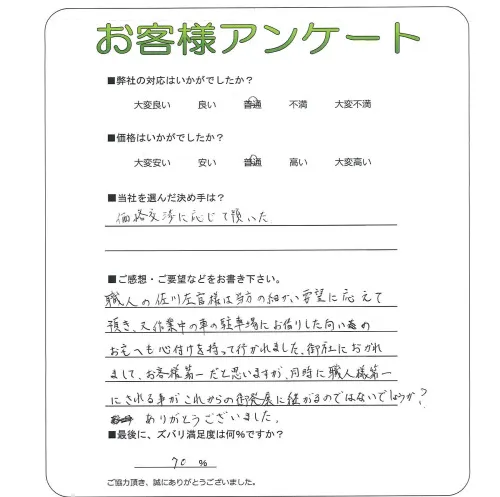 お客様アンケート
■弊社の対応はいかがでしたか？
大変良い 良い 普通 不満 大変不満
■価格はいかがでしたか？
大変安い 安い 普通 高い 大変高い
■当社を選んだ決め手は？
価格交渉に応じて頂いた
■ご感想・ご要望などをお書き下さい。
職人の佐川左官様は当方の細かい要望に応えて
頂き、又作業中の車の駐車場にお借りした向い側の
お宅へも心付けを持って行かれました。御社におかれ
まして、お客様第一だと思いますが、同時に職人様第一
にされる事がこれからの御発展に継がるのではないでしょうか？
ありがとうございました。
■最後に、ズバリ満足度は何％ですか？
70 ％
ご協力頂き、誠にありがとうございました。